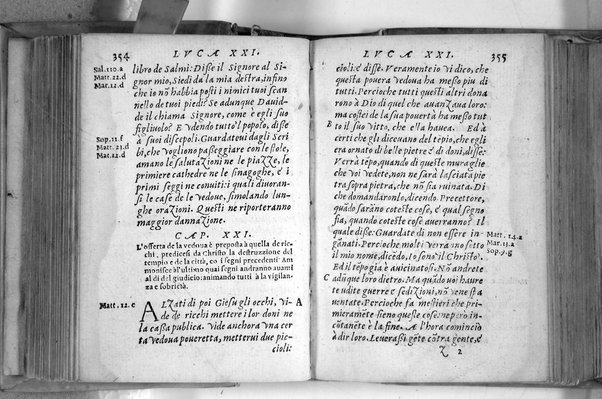 354 LVCA XXI.
Sal. 110. a
Matt. 22. d
Mar. 12. d
libro de Salmi: Disse il Signore al Si-
gnor mio, Siedi da la mia destra, infino
che io nõ habbia posti i nimici tuoi scan
nello de tuoi piedi? Se adunque Dauid-
de il chiama Signore, come è egli suo
figliuolo? E vdendo tutto'l popolo, disse
Sop. 11. f
Matt. 23. d
Mar. 12. d
a suoi discepoli. Guardateui dagli Scri
bi, che vogliono passeggiar con le stole,
amano le salutazioni ne le piazze, le
primiere cathedre ne le sinagoghe, e i
primi seggi ne conuiti: quali diuoran-
si le case de le vedoue, simolando lun-
ghe orazioni. Questi ne riporteranno
maggior dannazione.
CAP. XXI.
L'offerta de la vedoua è preposta à quella de ric
chi, predicesi da Christo la destruzzione del
tempio e de la città, co i segni precedenti Am
monisce h'ultimo quai segni andranno auanti
al dì del giudicio: animando tutti à la vigilan
za e sobrietà.
Matt. 12. e
A
ALzati di poi Giesu gli occhi, vi-
de de ricchi mettere i lor doni ne
la cassa publica. Vide anchora vna cer
ta vedoua poueretta, metterui due pic-
cioli:
LVCA XXI. 355
cioli: e disse. Veramente io vi dico, che
questa pouera vedoua ha messo piu di
tutti. Percioche tutti questi altri dona
rono à Dio di quel che auanzaua loro:
ma costei de la sua pouertà ha messo tut
B
to il suo vitto, che ella hauea. Ed à
certi che gli diceuano del tẽpio, che egli
era ornato di belle pietre e di doni, disse:
Verrà tẽpo, quando di queste muraglie
che voi vedete, non ne sarà lasciata pie
tra sopra pietra, che nõ sia ruinata. Di
che domandaronlo, dicendo. Precettore,
quãdo sarãno coteste cose, e qual segno
sia, quando coteste cose auerranno? Il
quale disse: Guardate di non essere in-
Matt. 24. a
Mar. 13. a
gãnati. Percioche molti verranno sotto
il mio nome, dicẽdo, Io sono il Christo.
Ed il tẽpo già è auicinatosi. Nõ andrete
C
adũque loro dietro. Ma quãdo voi haure
te udite guerre e sedizioni, nõ vene spa
uentate. Percioche fa mestieri che pri-
mieramẽte sieno queste cose: ne però in-
cõtanẽte è la fine. A l'hora cominciò
à dir loro. Leuerassi gẽte cõtra gente, e
Z 2